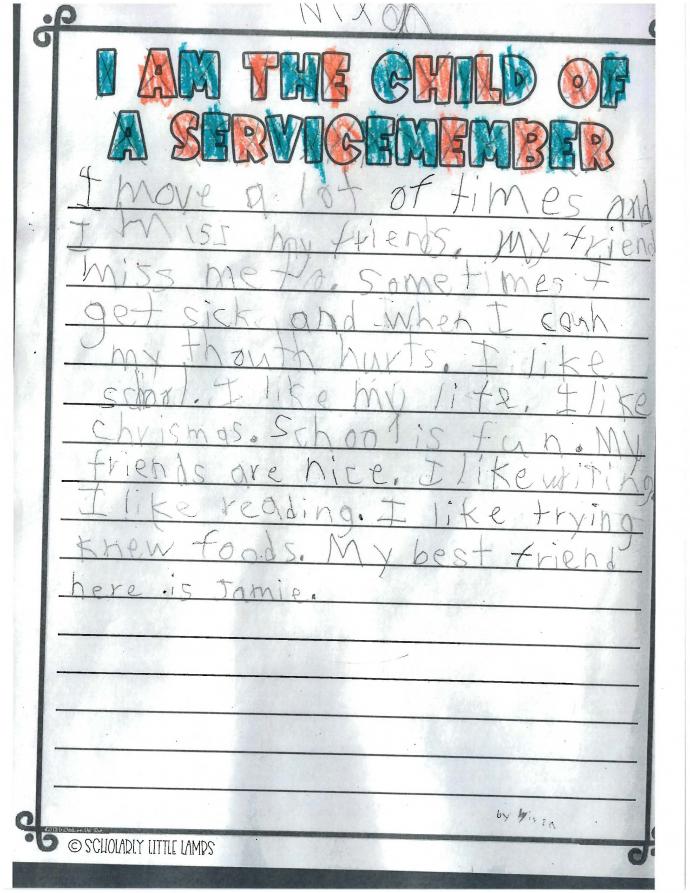 Nixon
I AM THE CHILD OF
A SERVICEMEMBER
I move a lot of times and
I miss my friends. My friend
miss me to. Sometimes I
get sick and when I coah
my thouth hurts. I like
school. I like my life. I like
chrismas. School is fun. My
friends are nice. I like writing.
I like reading. I like trying
knew foods. My best friend
here is Jamie.
by Nixon
© SCHOLARLY LITTLE LAMBS